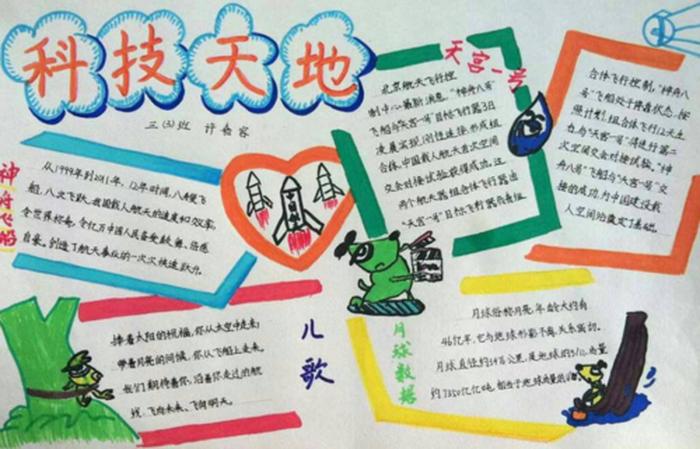 科技天地
三(3)班 许睿容
神舟飞船
从1999年到2011年，12年时间，八艘飞
船，八次飞跃。我国载人航天的速度和效率，
令世界惊奇，令亿万中国人民备受鼓舞、倍感
自豪。创造了航天事业的一次次快速跃升。
天宫一号
北京航天飞行控
制中心最新消息，"神舟八号"
飞船与"天宫一号"目标飞行器3日
凌晨实现刚性连接，形成组
合体，中国载人航天首次空间
交会对接试验获得成功。这
两个航天器组合体飞行器由
"天宫一号"目标飞行器负责组
合体飞行控制，"神舟八
号"飞船处于停靠状态。按
照计划，组合体飞行12天左
右，与"天宫一号"再进行第二
次空间交会对接试验。"神
舟八号"飞船与"天宫一号"交
接的成功，为中国建设载
人空间站奠定了基础。
儿歌
捧着太阳的祝福，你从太空中走来，
带着月亮的问候，你从飞船上走来。
我们期待着你，沿着你走过的航
线，飞向未来、飞向明天。
月球数据
月球俗称月亮，年龄大约有
46亿年，它与地球形影不离，关系密切。
月球直径约3476公里，是地球的3/11，质量
约7350亿亿吨，相当于地球质量的